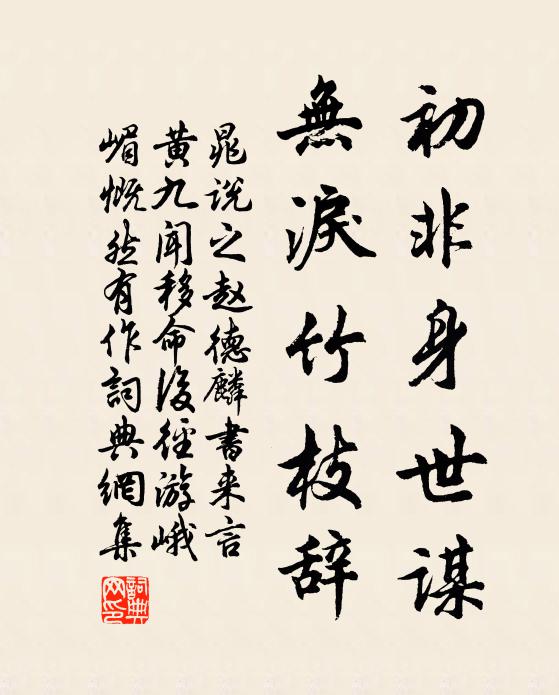 初非身世謀
無淚竹枝辞
晁说之赵德麟書来言
黄九闻移命後径游峨
嵋慨然有作詞典網集
詞典網印